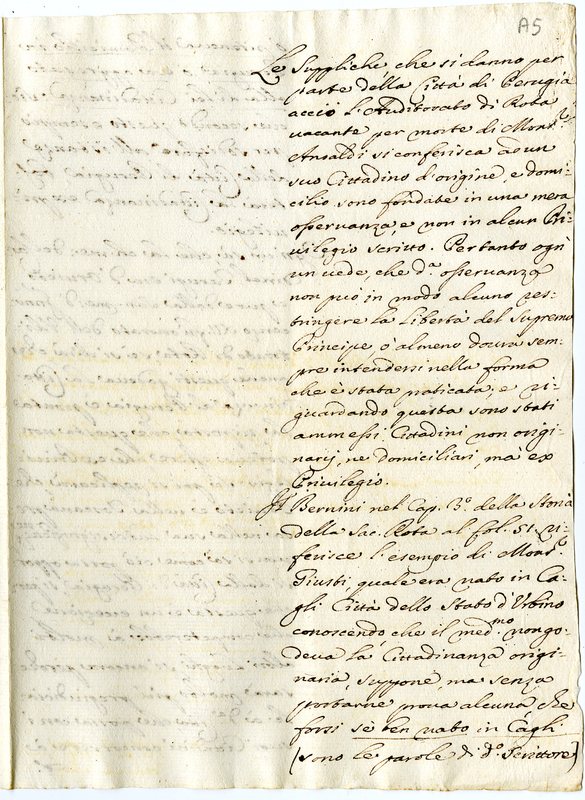 A5
Le Suppliche che si danno per
parte della Città di Perugia
acciò l'Auditorato di Rota
vacante per morte di Mons.r
Ansaldi si conferisca ad un
suo Cittadino d'origine, e domi-
cilio sono fondate in una mera
osservanza, e non in alcun Pri-
vilegio scritto. Pertanto ogn'
un vede, che d.a osservanza
non può in modo alcuno res-
tringere la Libertà del Supremo
Principe ò almeno dovrà sem-
pre intendersi nella forma
che è stata praticata, e ri-
guardando questa sono stati
ammessi Cittadini non origi-
narij, ne domiciliari, ma ex
Privilegio.
Il Bernini nel Cap. 3.o della Storia
della Sac. Rota al fol. 51. ri-
ferisce l'esempio di Mons.r
Giusti, quale era nato in Ca-
gli Città dello Stato d'Urbino
conoscendo, che il med.mo non go-
deva la Cittadinanza origi-
naria, suppone, ma senza
portarne prova alcuna, che
forsi se ben nato in Cagli
(sono le parole di d.o Scrittore)